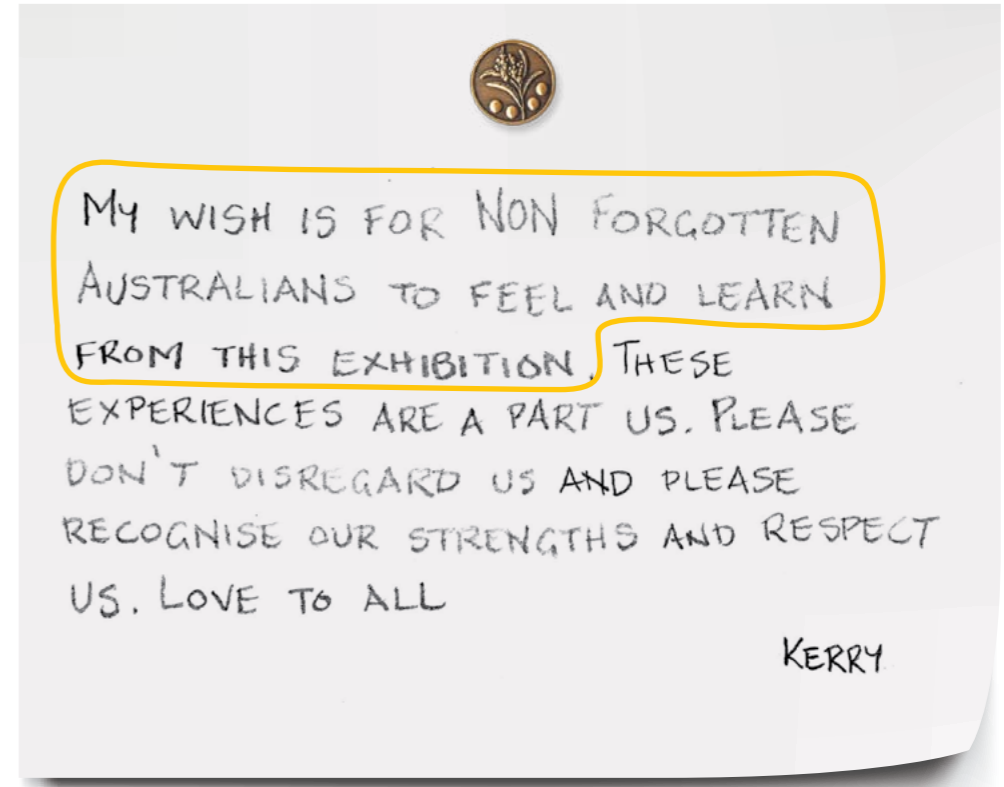 MY WISH IS FOR NON FORGOTTEN
AUSTRALIANS TO FEEL AND LEARN
FROM THIS EXHIBITION. THESE
EXPERIENCES ARE A PART US. PLEASE
DON'T DISREGARD US AND PLEASE
RECOGNISE OUR STRENGTHS AND RESPECT
US. LOVE TO ALL
KERRY